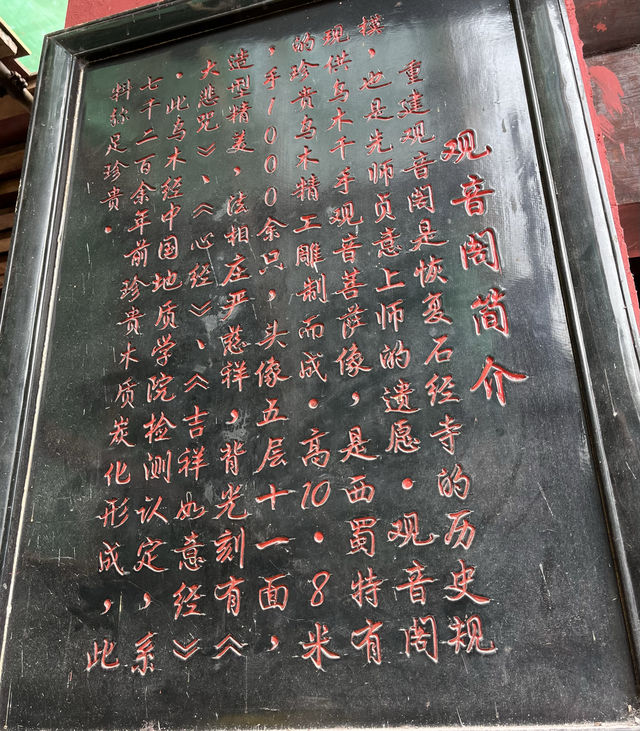 观音阁简介
重建观音阁是恢复石经寺的历史规
模，也是先师贞意上师的遗愿。观音阁
现供乌木千手观音菩萨像，是西蜀特有
的珍贵乌木精工雕制而成。高10·8米
，手1000余只，头像五层十一面，
造型精美，法相庄严慈祥，背光刻有《
大悲咒》、《心经》、《吉祥如意经》
。此乌木经中国地质学院检测认定，系
七千二百余年前珍贵木质炭化形成，此
料弥足珍贵。